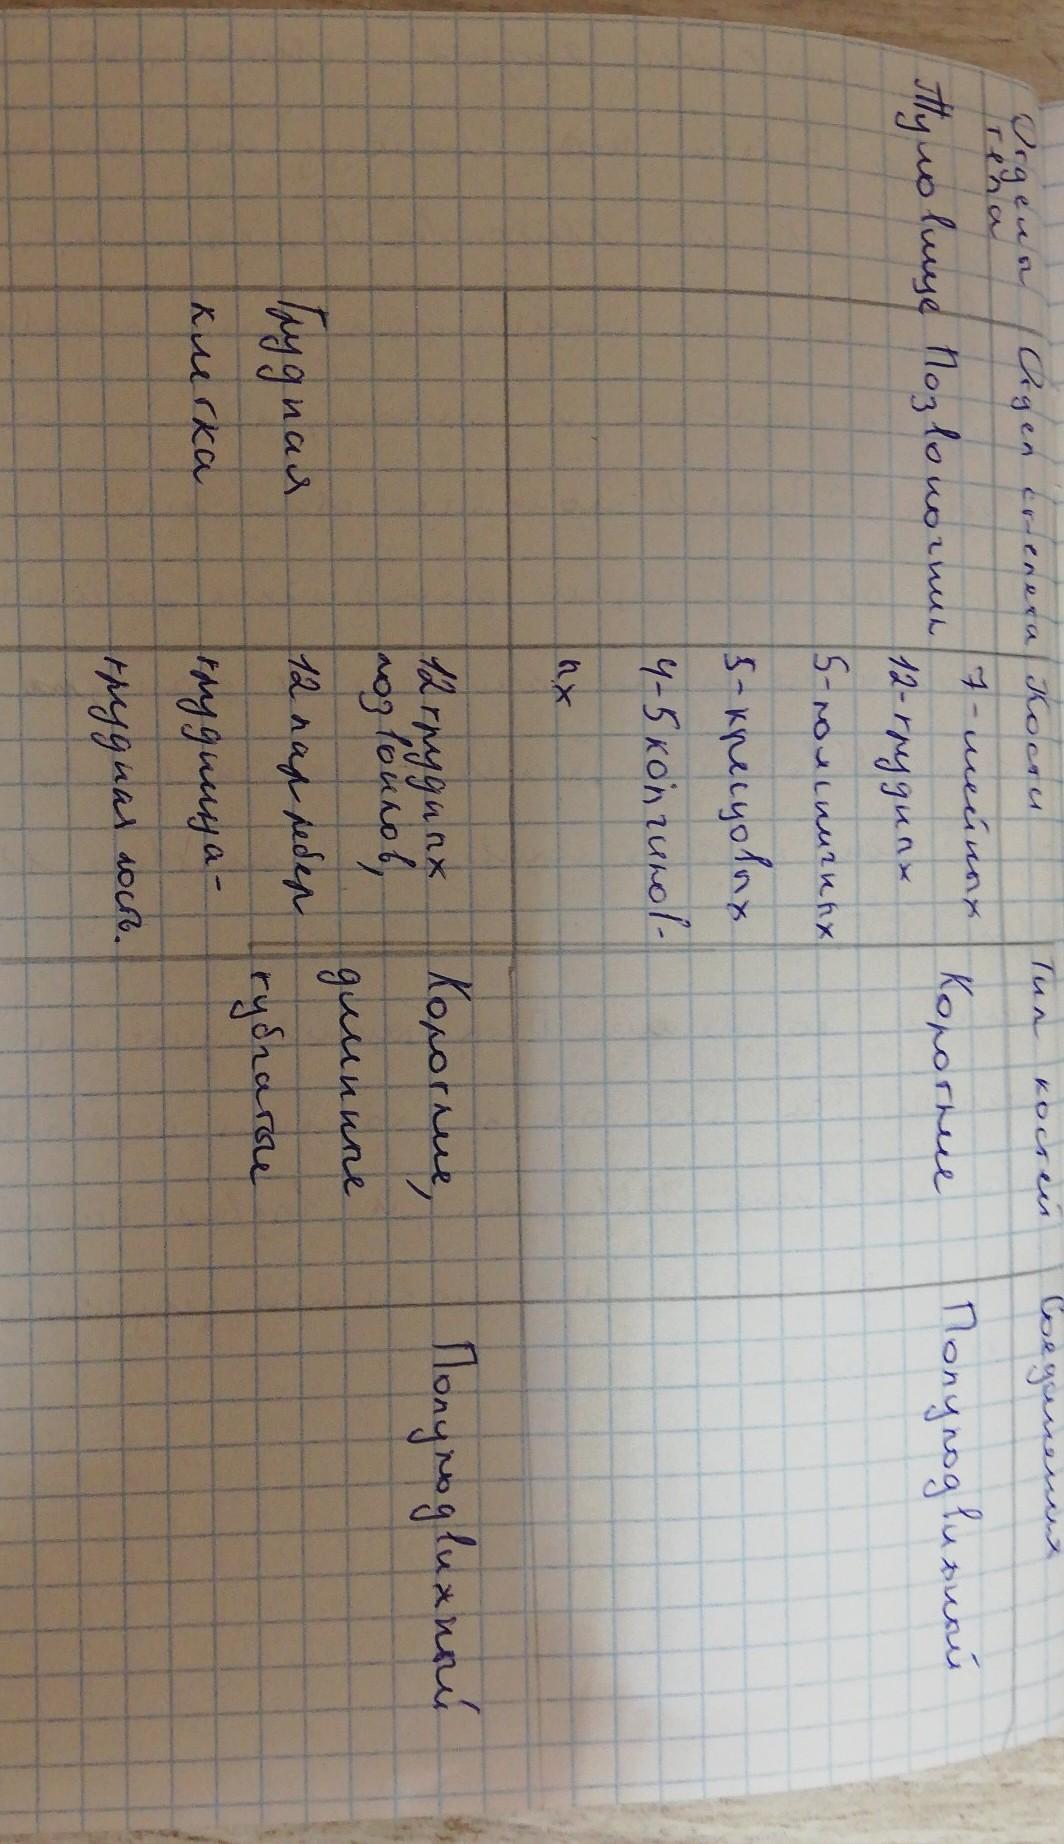 Отделы тела
Отдел скелета
Кости
Тип костей
Соединения
Туловище
Позвоночник
7-шейных
12-грудных
5-поясничных
5-кресцовых
4-5 копчиков-
ых
Короткие
Полуподвижный
Грудная
клетка
12 грудных
позвонков,
12 пар ребер
грудина-
грудная кость.
Короткие,
длинные
губчатые
Полуподвижный